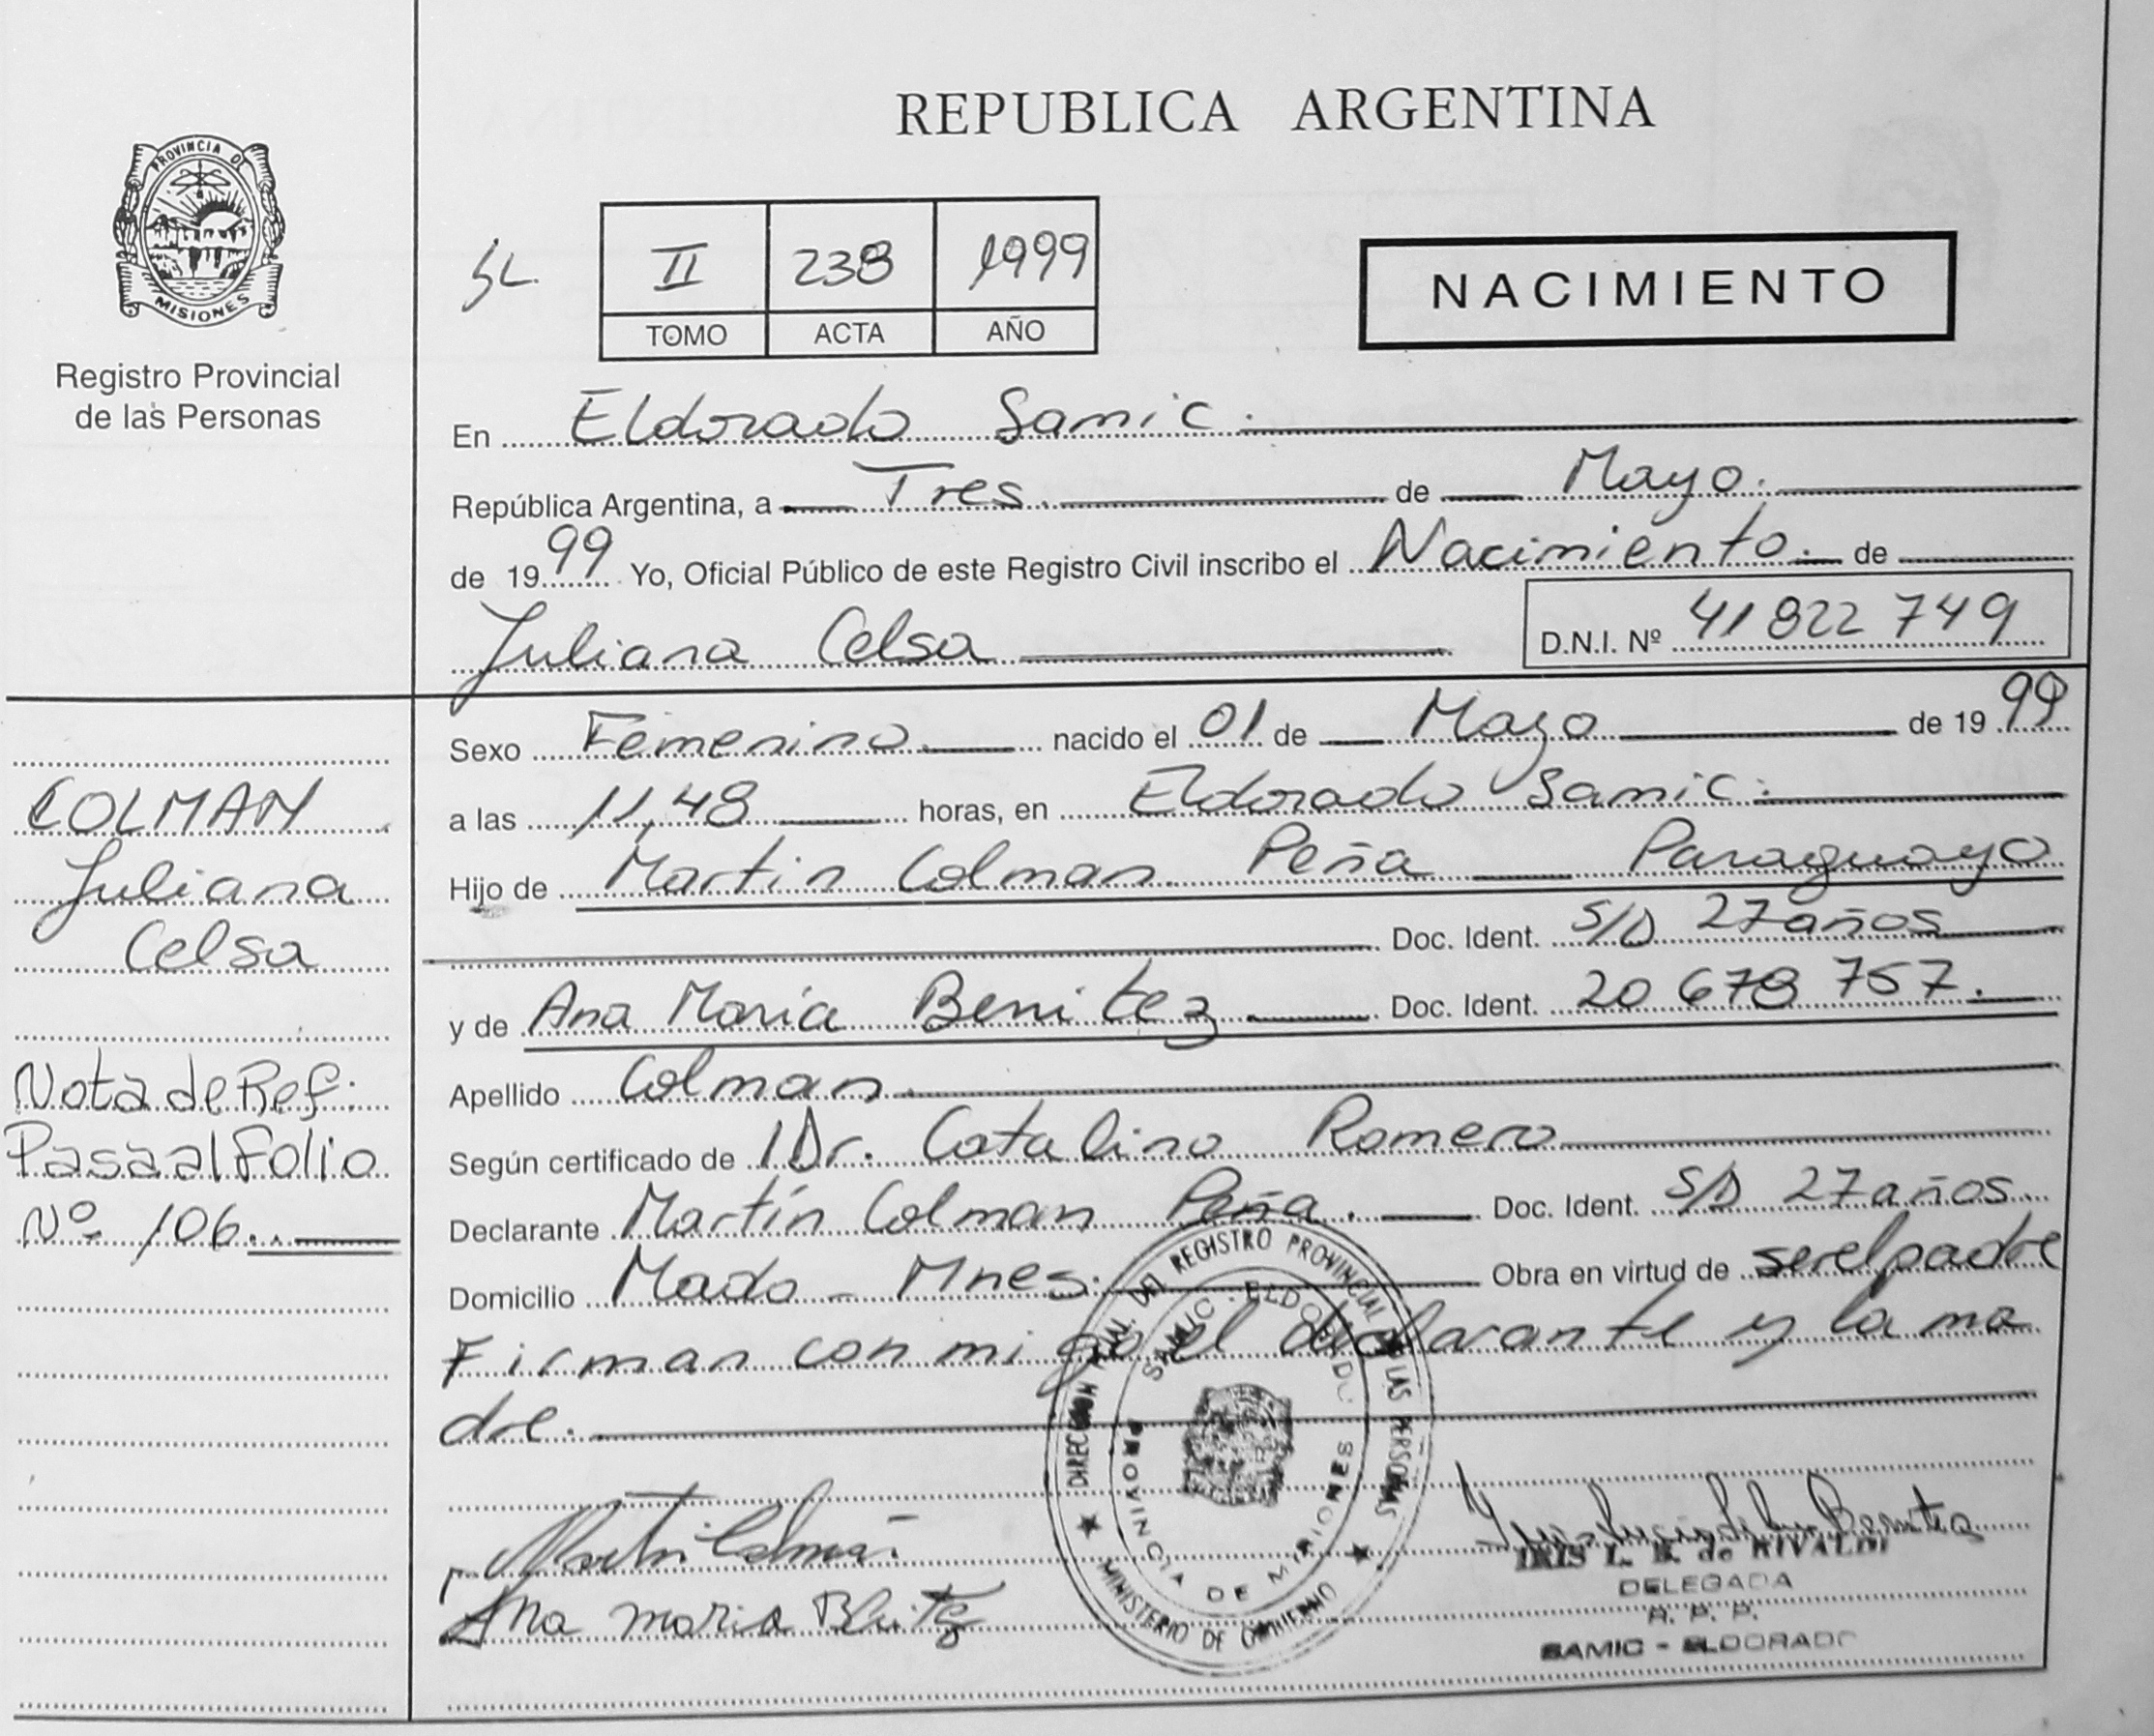 REPUBLICA ARGENTINA
PROVINCIA DE
MISIONES
Registro Provincial
de las Personas
SL
II 238 1999
TOMO ACTA AÑO
NACIMIENTO
En Eldorado Samic.
República Argentina, a Tres de Mayo.
de 1999 Yo, Oficial Público de este Registro Civil inscribo el Nacimiento. de
Juliana Celsa D.N.I. Nº 41 822 749
Sexo Femenino nacido el 01 de Mayo de 1999
a las 11,48 horas, en Eldorado Samic.
Hijo de Martin Colman Peña Paraguayo
Doc. Ident. S/D 27 años
y de Ana Maria Benitez. Doc. Ident. 20 678 757.
Apellido Colman.
Según certificado de Dr. Catalino Romero
Declarante Martín Colman Peña. Doc. Ident. S/D 27 años
Domicilio Mado - Mnes. Obra en virtud de ser el padre
Firman con migo el declarante y la ma
dre.
COLMAN
Juliana
Celsa
Nota de Ref:
Pasa al Folio
Nº 106..
DIRECCION DEL REGISTRO PROVINCIAL DE LAS PERSONAS
MINISTERIO DE GOBIERNO
SAMIC - ELDORADO
PROVINCIA DE MISIONES
Ana maria
IRIS L. B. de RIVALDI
DELEGADA
R. P. P.
SAMIC - ELDORADO